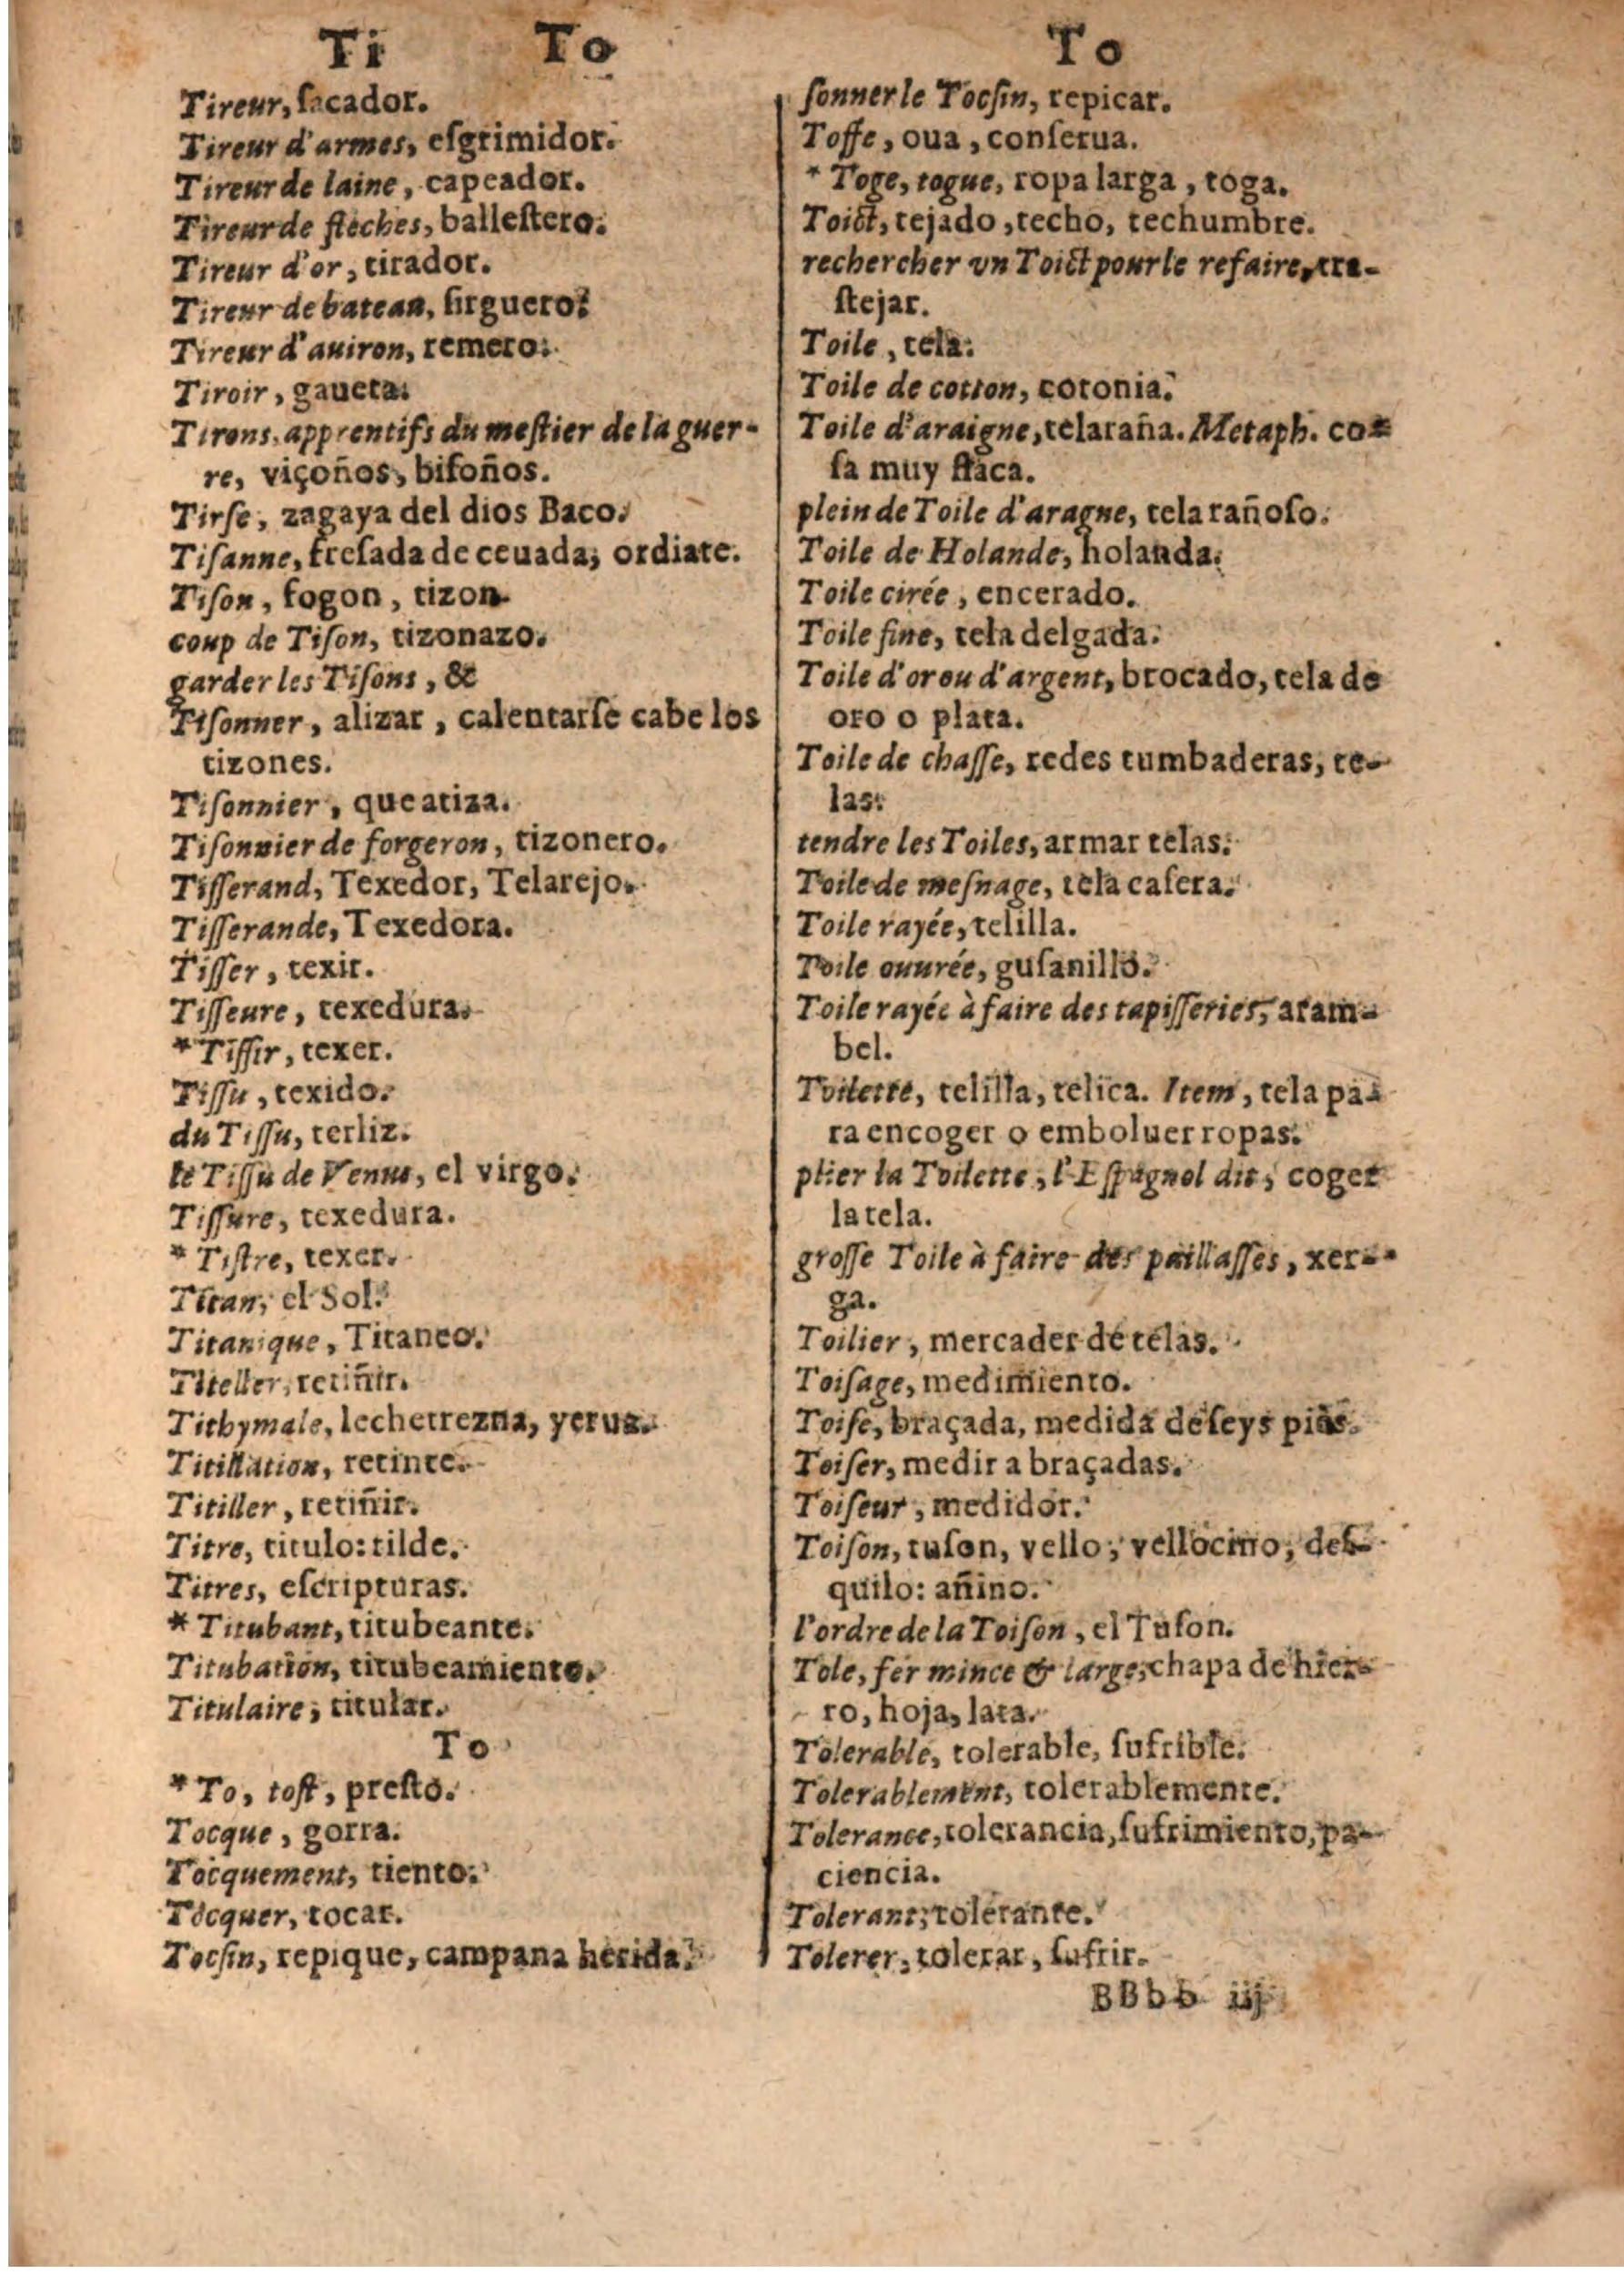 Ti To
Tireur, sacador.
Tireur d'armes, eſgrimidor.
Tireur de laine, capeador.
Tireur de fleches, balleſtero.
Tireur d'or, tirador.
Tireur de bateau, ſirguero.
Tireur d'auiron, remero.
Tiroir, gaueta.
Tirons, apprentifs du meſtier de la guer-
re, viçoños, biſoños.
Tirſe, zagaya del dios Baco.
Tiſanne, freſada de ceuada, ordiate.
Tiſon, fogon, tizon.
coup de Tiſon, tizonazo.
garder les Tiſons, &
Tiſonner, alizar, calentarſe cabe los
tizones.
Tiſonnier, que atiza.
Tiſonnier de forgeron, tizonero.
Tiſſerand, Texedor, Telarejo.
Tiſſerande, Texedora.
Tiſſer, texir.
Tiſſeure, texedura.
* Tiſſir, texer.
Tiſſu, texido.
du Tiſſu, terliz.
le Tiſſu de Venus, el virgo.
Tiſſure, texedura.
* Tiſtre, texer.
Titan, el Sol.
Titanique, Titaneo.
Titeller, retiñir.
Tithymale, lechetrezna, yerua.
Titillation, retinte.
Titiller, retiñir.
Titre, titulo: tilde.
Titres, eſcripturas.
* Titubant, titubeante.
Titubation, titubeamiento.
Titulaire, titular.
To
* To, toſt, preſto.
Tocque, gorra.
Tocquement, tiento.
Tocquer, tocar.
Tocſin, repique, campana herida.
To
ſonner le Tocſin, repicar.
Toffe, oua, conſerua.
* Toge, togue, ropa larga, toga.
Toict, tejado, techo, techumbre.
rechercher vn Toict pour le refaire, tra-
ſtejar.
Toile, tela.
Toile de cotton, cotonia.
Toile d'araigne, telaraña. Metaph. co-
ſa muy flaca.
plein de Toile d'aragne, tela rañoſo.
Toile de Holande, holanda.
Toile cirée, encerado.
Toile fine, tela delgada.
Toile d'or ou d'argent, brocado, tela de
oro o plata.
Toile de chaſſe, redes tumbaderas, te-
las.
tendre les Toiles, armar telas.
Toile de meſnage, tela caſera.
Toile rayée, telilla.
Toile ouurée, guſanillo.
Toile rayée à faire des tapiſſeries, aram-
bel.
Toilette, telilla, telica. Item, tela pa-
ra encoger o emboluer ropas.
plier la Toilette, l'Eſpagnol dit, coger
la tela.
groſſe Toile à faire des paillaſſes, xer-
ga.
Toilier, mercader de telas.
Toiſage, medimiento.
Toiſe, braçada, medida de ſeys pies.
Toiſer, medir a braçadas.
Toiſeur, medidor.
Toiſon, tuſon, vello, vellocino, deſ-
quilo: añino.
l'ordre de la Toiſon, el Tuſon.
Tole, fer mince & large, chapa de hier-
ro, hoja, lata.
Tolerable, tolerable, ſufrible.
Tolerablement, tolerablemente.
Tolerance, tolerancia, ſufrimiento, pa-
ciencia.
Tolerant, tolerante.
Tolerer, tolerar, ſufrir.
BBbb iij